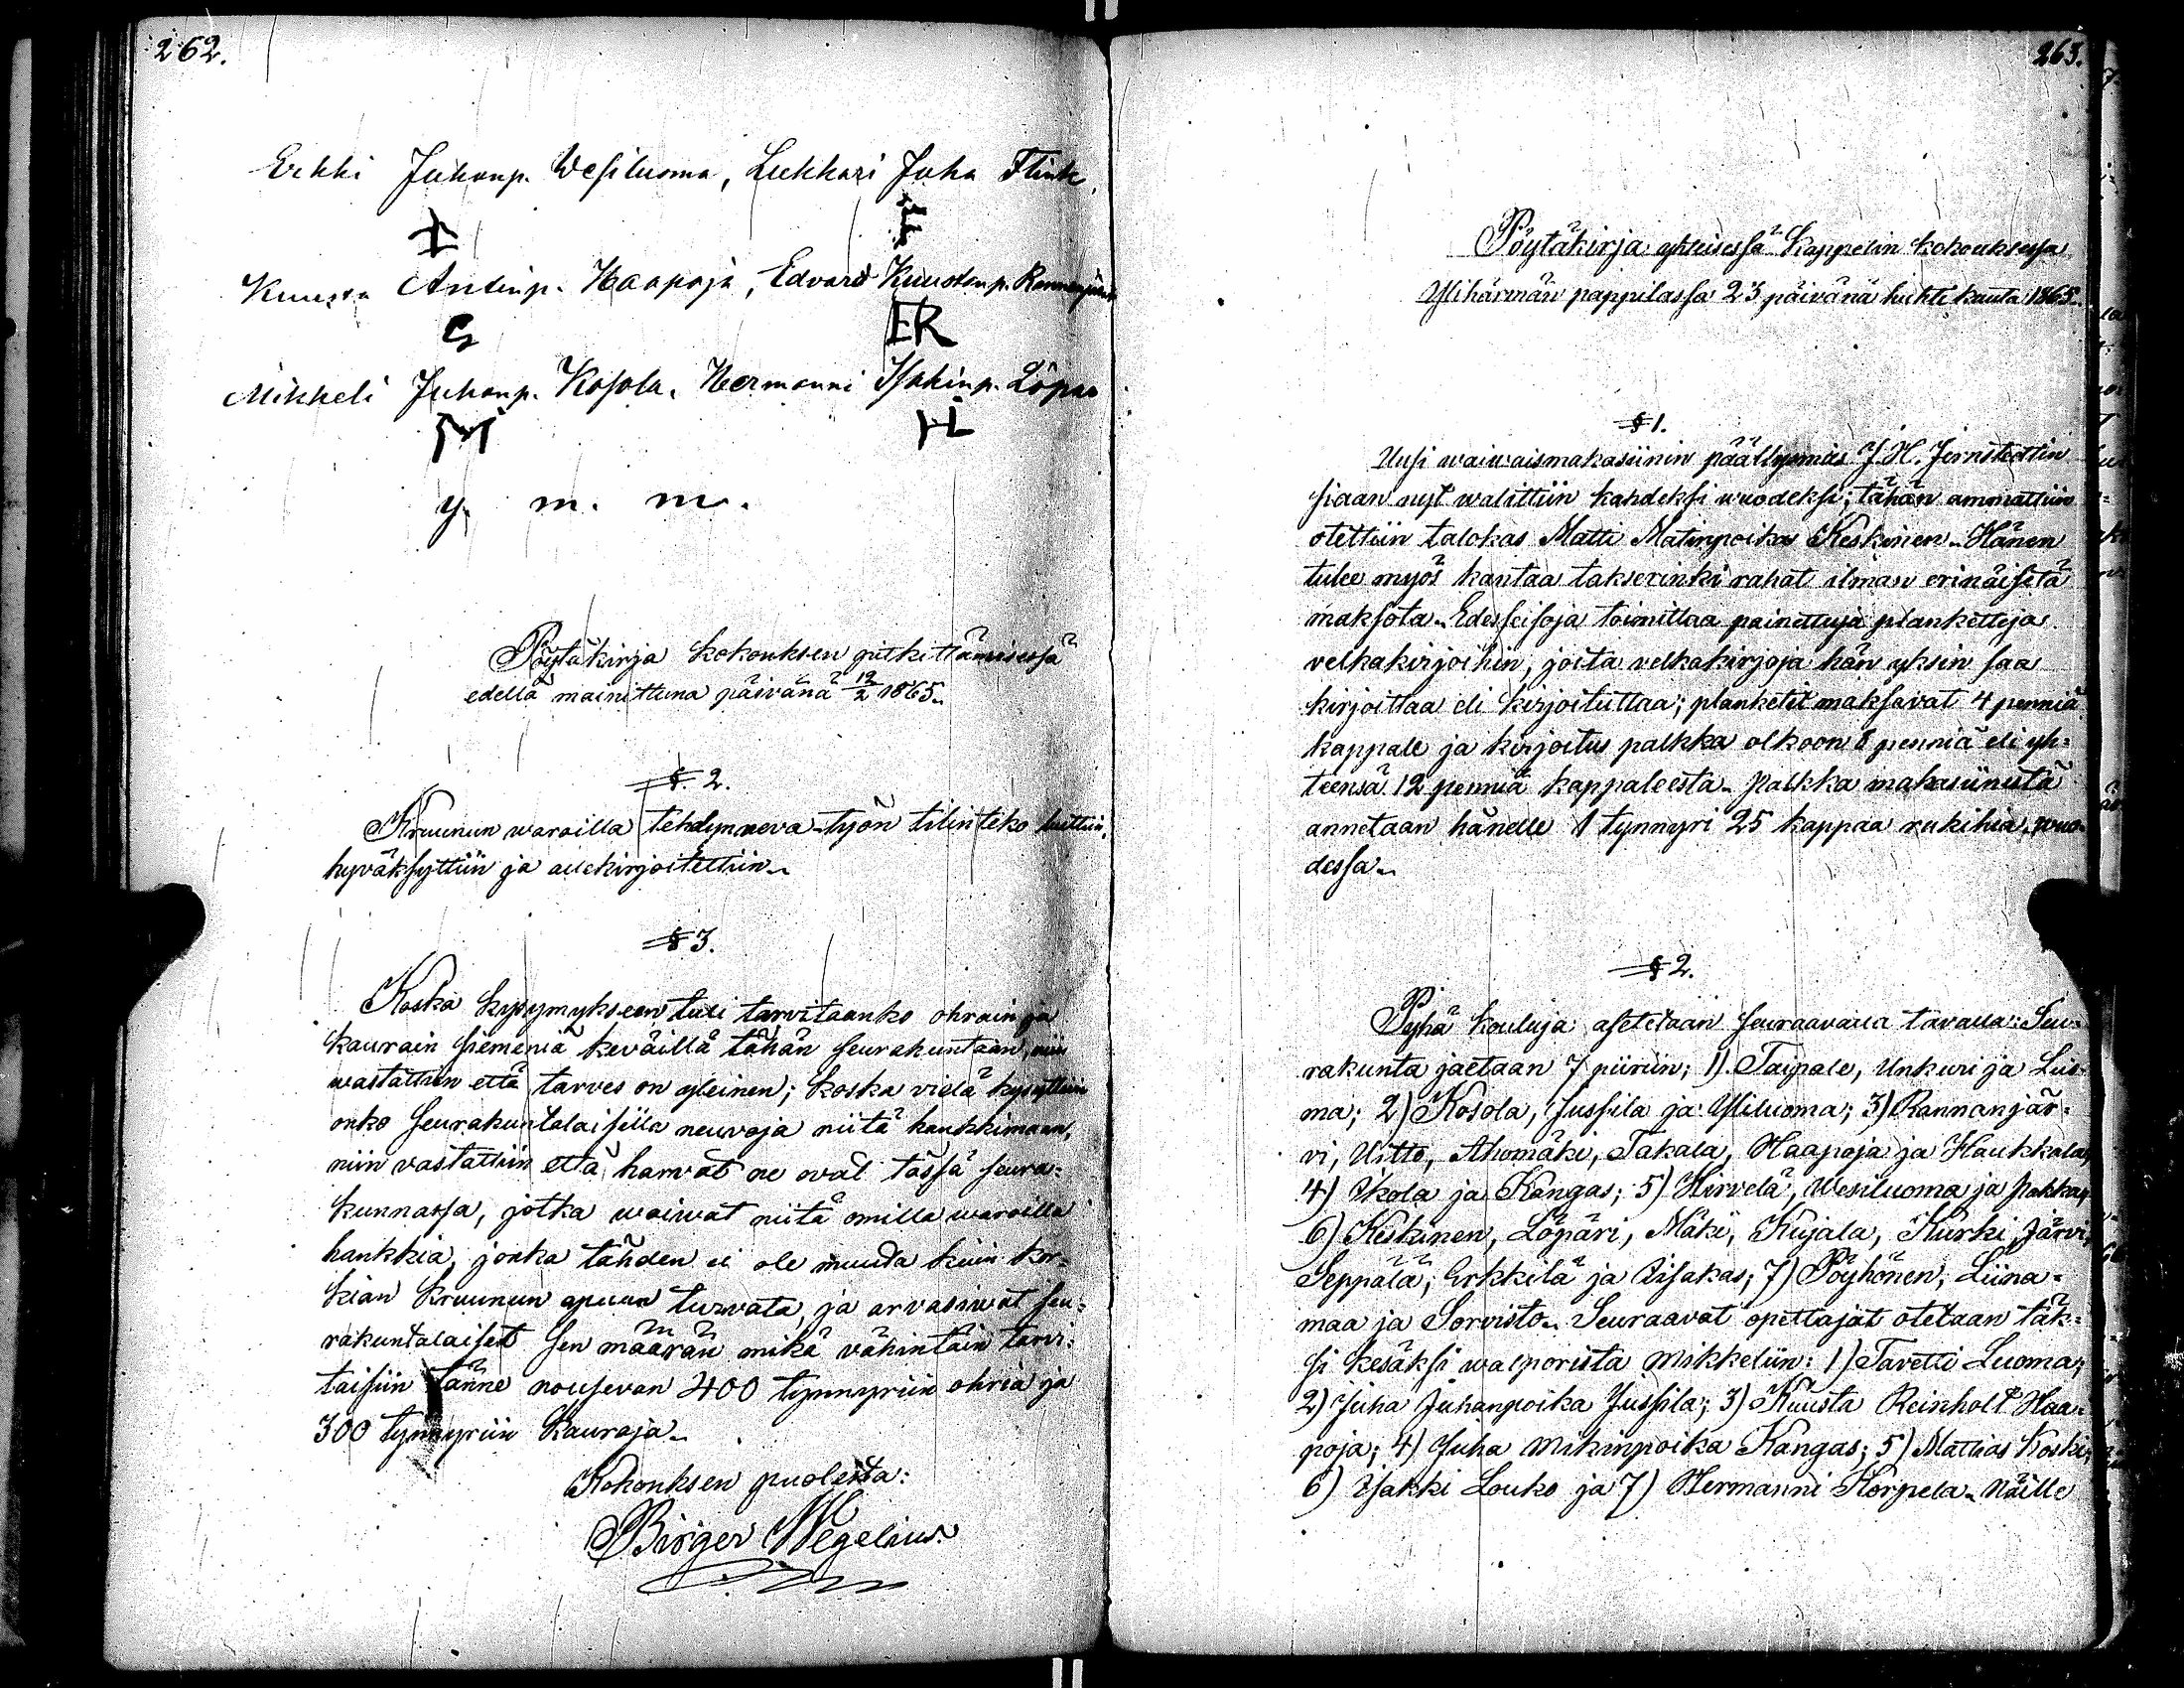 262.
Erkki Juhanp. Wesiluoma, Lukkari Juha Flink
Kuusta Antinp. Haapoja, Edvard Kuustanp. Rannanjärvi
G ER
Mikkeli Juhanp. Kosola. Hermanni Isakinp. Löpae
M HL
y. m. m.
Pöytäkirja kokouksen pitkittämisessä
edellä mainittuna päivänä 19/2 1865.
§. 2.
Kruunun waroilla tehdyn neva-työn tilinteko luettiin,
hyväksyttiin ja allekirjoitettiin.
§ 3.
Koska kysymykseen tuli tarvitaanko ohrain ja
kaurain siemeniä keväillä tähän seurakuntaan, niin
wastattiin että tarves on yleinen; koska vielä kysyttiin
onko seurakuntalaisilla neuvoja niitä hankkimaan,
niin vastattiin että harwat ne owat tässä seura-
kunnassa, jotka woiwat niitä omilla waroilla
hankkia, jonka tähden ei ole muuta kuin kor-
kian Kruunun apuun turwata, ja arvasiwat seu-
rakuntalaiset sen määrän mikä vähintäin tarvi-
taisiin tänne nousevan 400 tynnyriin ohria ja
300 tynnyriin kauroja.
Kokouksen puolesta:
Birger Wegelius.
263.
Pöytäkirja yhteisessä Kappelin kokouksessa
Ylihärmän pappilassa 23 päivänä huhti kuuta 1865.
§ 1.
Uusi waiwaismakasiinin päällysmies J. H. Jernstedtin
siaan nyt walittiin kahdeksi wuodeksi; tähän ammattiin
otettiin talokas Matti Matinpoika Keskinen. Hänen
tulee myös kantaa takserinki rahat ilman erinäisetä
maksota. Edesseisoja toimittaa painettuja planketteja
velkakirjoihin, joita velkakirjoja hän yksin saa
kirjoittaa eli kirjoituttaa; planketit maksavat 4 penniä
kappale ja kirjoitus palkka olkoon 8 penniä eli yh-
teensä 12 penniä kappaleesta. Palkka makasiinista
annetaan hänelle 1 tynnyri 25 kappaa rukihia wuo-
dessa.
§ 2.
Pyhä kouluja asetetaan seuraavalla tavalla: Seu-
rakunta jaetaan 7 piiriin; 1). Taipale, Unkuri ja Luo-
ma; 2) Kosola, Jussila ja Yliluoma; 3) Rannanjär-
vi, Uitto, Ahomäki, Takala, Haapoja ja Haukkala,
4) Ikola ja Kangas; 5) Hirvelä, Wesiluoma ja Pakka,
6) Keskinen, Löpäri, Mäki, Kujala, Kurki, Järvi,
Seppälä, Erkkilä ja Iisakas; 7) Pöyhönen, Liina-
maa ja Sorvisto. Seuraavat opettajat otetaan täk-
si kesäksi walporista Mikkeliin: 1) Tavetti Luoma;
2) Juha Juhanpoika Jussila; 3) Kuusta Reinholt Haa-
poja; 4) Juha Mikinpoika Kangas; 5) Mattias Koski;
6) Isakki Louko ja 7) Hermanni Korpela. Näille